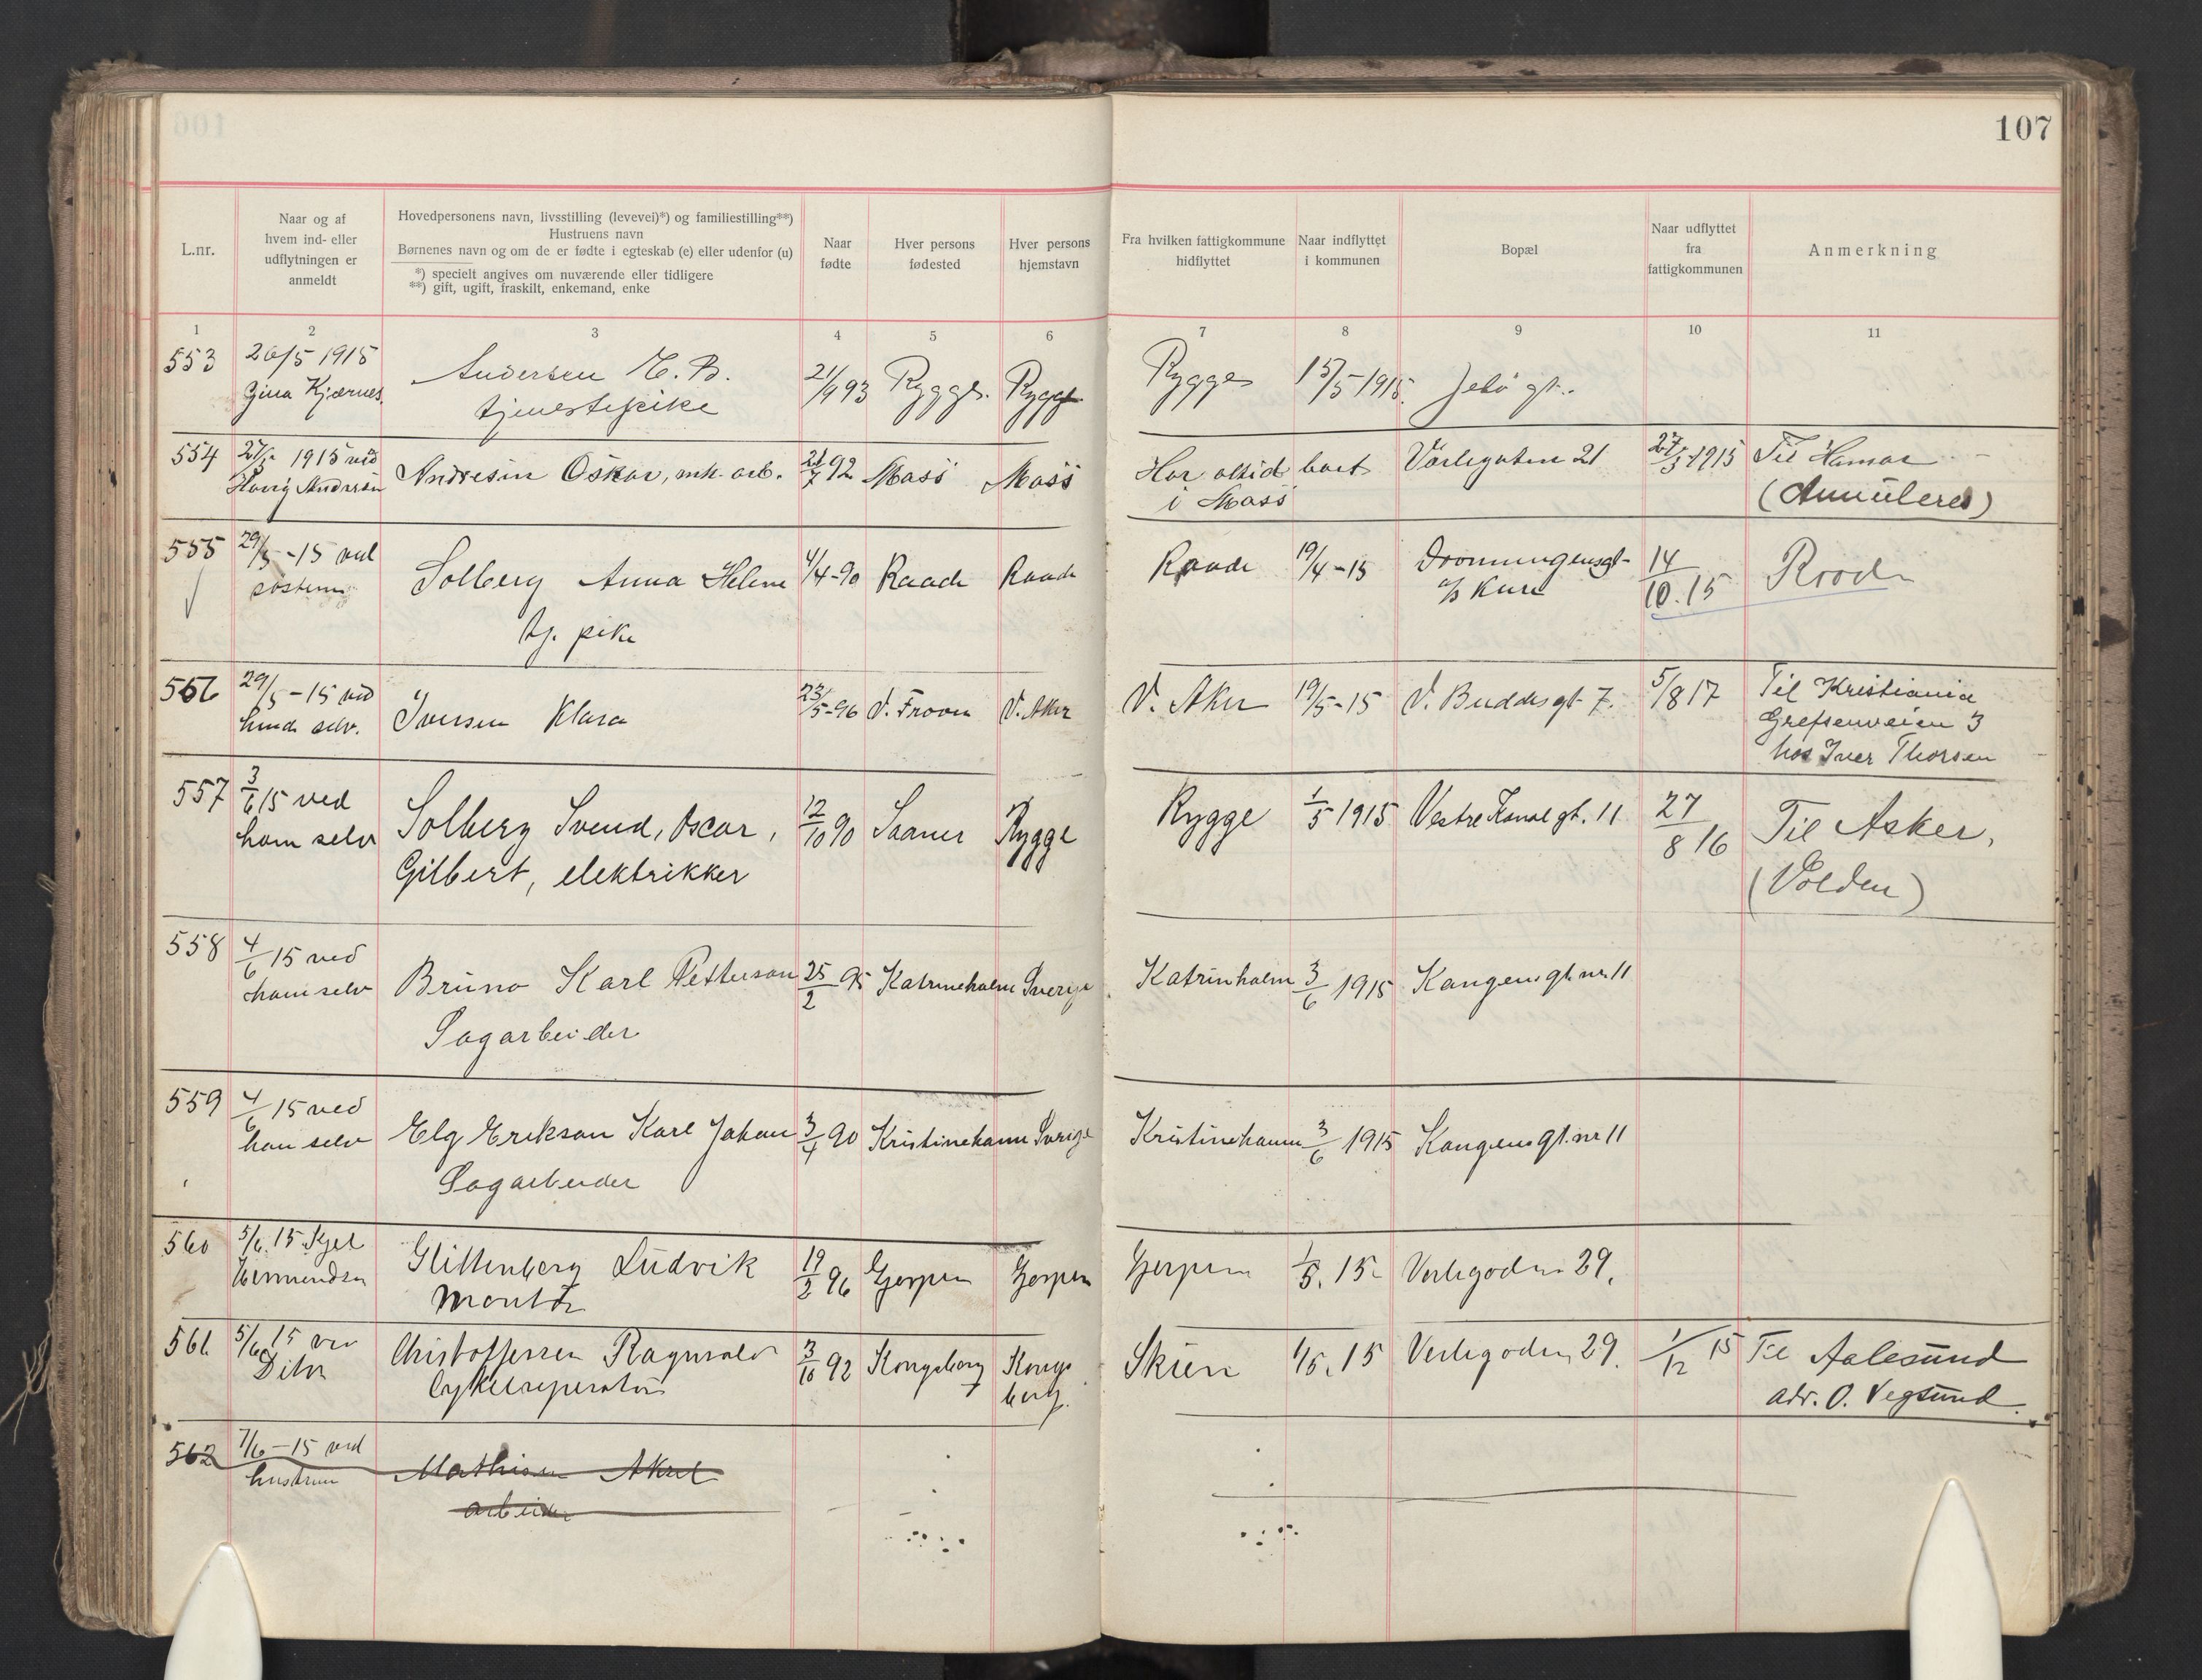 107
L.nr.
Naar og af
hvem ind- eller
udflytningen er
anmeldt
Hovedpersonens navn, livsstilling (levevei)*) og familiestilling**)
Hustruens navn
Børnenes navn og om de er fødte i egteskab (e) eller udenfor (u)
*) specielt angives om nuværende eller tidligere
**) gift, ugift, fraskilt, enkemand, enke
Naar
fødte
Hver persons
fødested
Hver persons
hjemstavn
Fra hvilken fattigkommune
hidflyttet
Naar indflyttet
i kommunen
Bopæl
Naar udflyttet
fra
fattigkommunen
Anmerkning
1 2 3 4 5 6 7 8 9 10 11
553 26/5 1915 Andersen 21/9 93 Rygge. Rygge Rygge 15/5 1915. Jelø gt.
Gina Kjærnes. tjenestepike
554 1915 ved Andresen Oskar, mk. arb. 92 Moss Moss Har altid boet Vaarlegaten 21 27/5 1915 Til Hamar
Andersen i Moss (Annuleres)
555 29/5 -15 ved Solberg Anna Helene 4/4-90 Raade Raade Raade 19/4-15 Dronningensgt- 14
søsteren c/o Kure 10.15
tj. pike
556 29/5 -15 ved Iversen Klara 23/5-96 V. Aker V. Aker 19/5-15 V. Buddesgt 7. 5/8 17 Til Kristiania
hende selv. Grefsenveien 3
hos Iver Thorsen
557 3/6 15 ved Solberg Svend, Oscar, 12/10 90 Saaner Rygge Rygge 1/5 1915 Vestre Kanalgt. 11 27/8 16 Til Asker,
ham selv Gilbert, elektrikker (Volden)
558 4/6 15 ved Bruno Karl Petterson 25/2 95 Katrineholm Sverige Katrinholm 3/6 1915 Kongensgt. nr. 11
ham selv Sagarbeider
559 4/6 15 ved Elg Erikson Karl Johan 3/4 90 Kristinehamn Sverige Kristinehamn 3/6 1915 Kongensgt. nr 11
han selv Sagarbeider
560 5/6. 15 Ludvik 19/2 96 Gjerpen Gjerpen Gjerpen 1/5. 15 29.
Montør
561. 5/6 15 ved Christoffersen Ragnvald 3/10 92 Kongsberg Kongs Skien 1/5. 15 29. 1/12 15 Til Aalesund
Ditto Cykelreparatør berg. adr. O. Vegsund.
562 7/6-15 ved Mathisen Aksel
hustruen arbeider